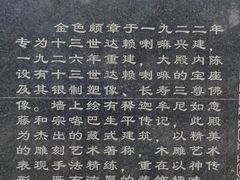 金色颇章于一九二二年
专为十三世达赖喇嘛兴建，
一九二六年重建，大殿内陈
设有十三世达赖喇嘛的宝座
及其银制塑像、长寿三尊佛
像。墙上绘有释迦牟尼如意
藤和宗喀巴生平传记，此殿
为杰出的藏式建筑，以精美
的雕刻艺术著称，木雕以神
表现手法精练，重在传情